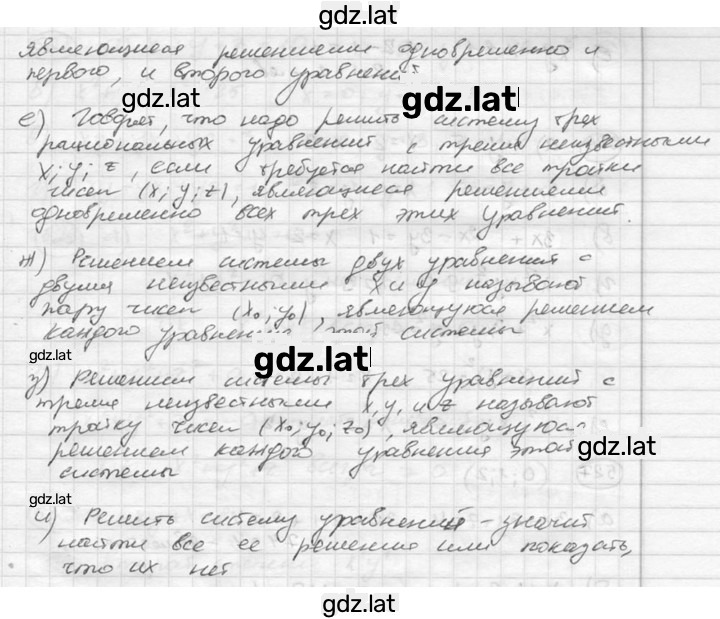 gdz.lat
являющиеся решениями одновременно и
первого, и второго уравнени
gdz.lat
gdz.lat
е) Говорят, что надо решить систему трех
рациональных уравнений с тремя неизвестными
x; y; z, если требуется найти все тройки
чисел (x; y; z), являющиеся решениями
одновременно всех трех этих уравнений.
ж) Решением системы двух уравнения с
двумя неизвестными x и y называют
пару чисел (x₀; y₀), являющуюся решением
каждого уравнения этой системы
gdz.lat
gdz.lat
з) Решением системы трех уравнений с
тремя неизвестными x, y, и z называют
тройку чисел (x₀; y₀; z₀), являющуюс
решением каждого уравнения этой
системы
gdz.lat
gdz.lat
и) Решить систему уравнений - значит
найти все ее решения или показать,
что их нет
gdz.lat